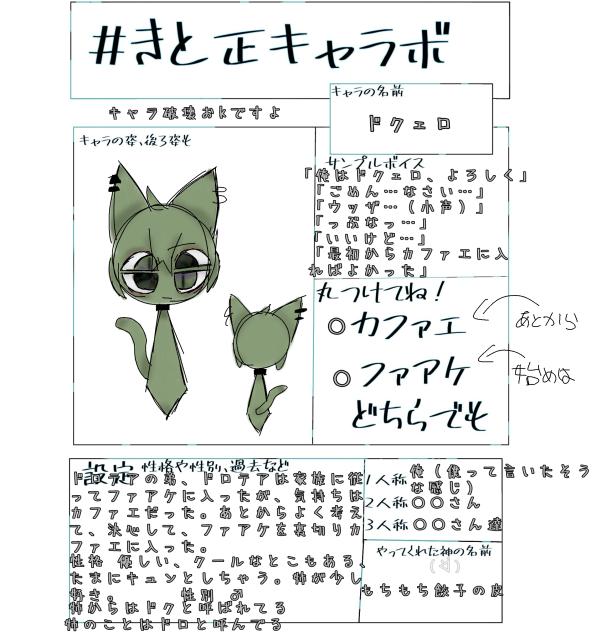 #きと正キャラボ
キャラ破壊おkですよ
キャラの名前
ドクェロ
キャラの姿、後ろ姿も
サンプルボイス
「俺はドクェロ、よろしく」
「ごめん…なさい…」
「ウッザ…(小声)」
「っぶなっ…」
「いいけど…」
「最初からカファエに入
ればよかった」
丸つけてね!
◎カファエ
あとから
◎ファアケ
始めは
どちらでも
設定 性格や性別、過去など
ドロテアの弟、ドロテアは家族に従
ってファアケに入ったが、気持ちは
カファエだった。あとからよく考え
て、決心して、ファアケを裏切りカ
ファエに入った。
性格 優しい、クールなとこもある、
たまにキュンとしちゃう。姉が少し
好き。 性別 ♂
姉からはドクと呼ばれてる
姉のことはドロと呼んでる
1人称 俺(僕って言いたそう
な感じ)
2人称 〇〇さん
3人称 〇〇さん達
やってくれた神の名前
もちもち餃子の皮